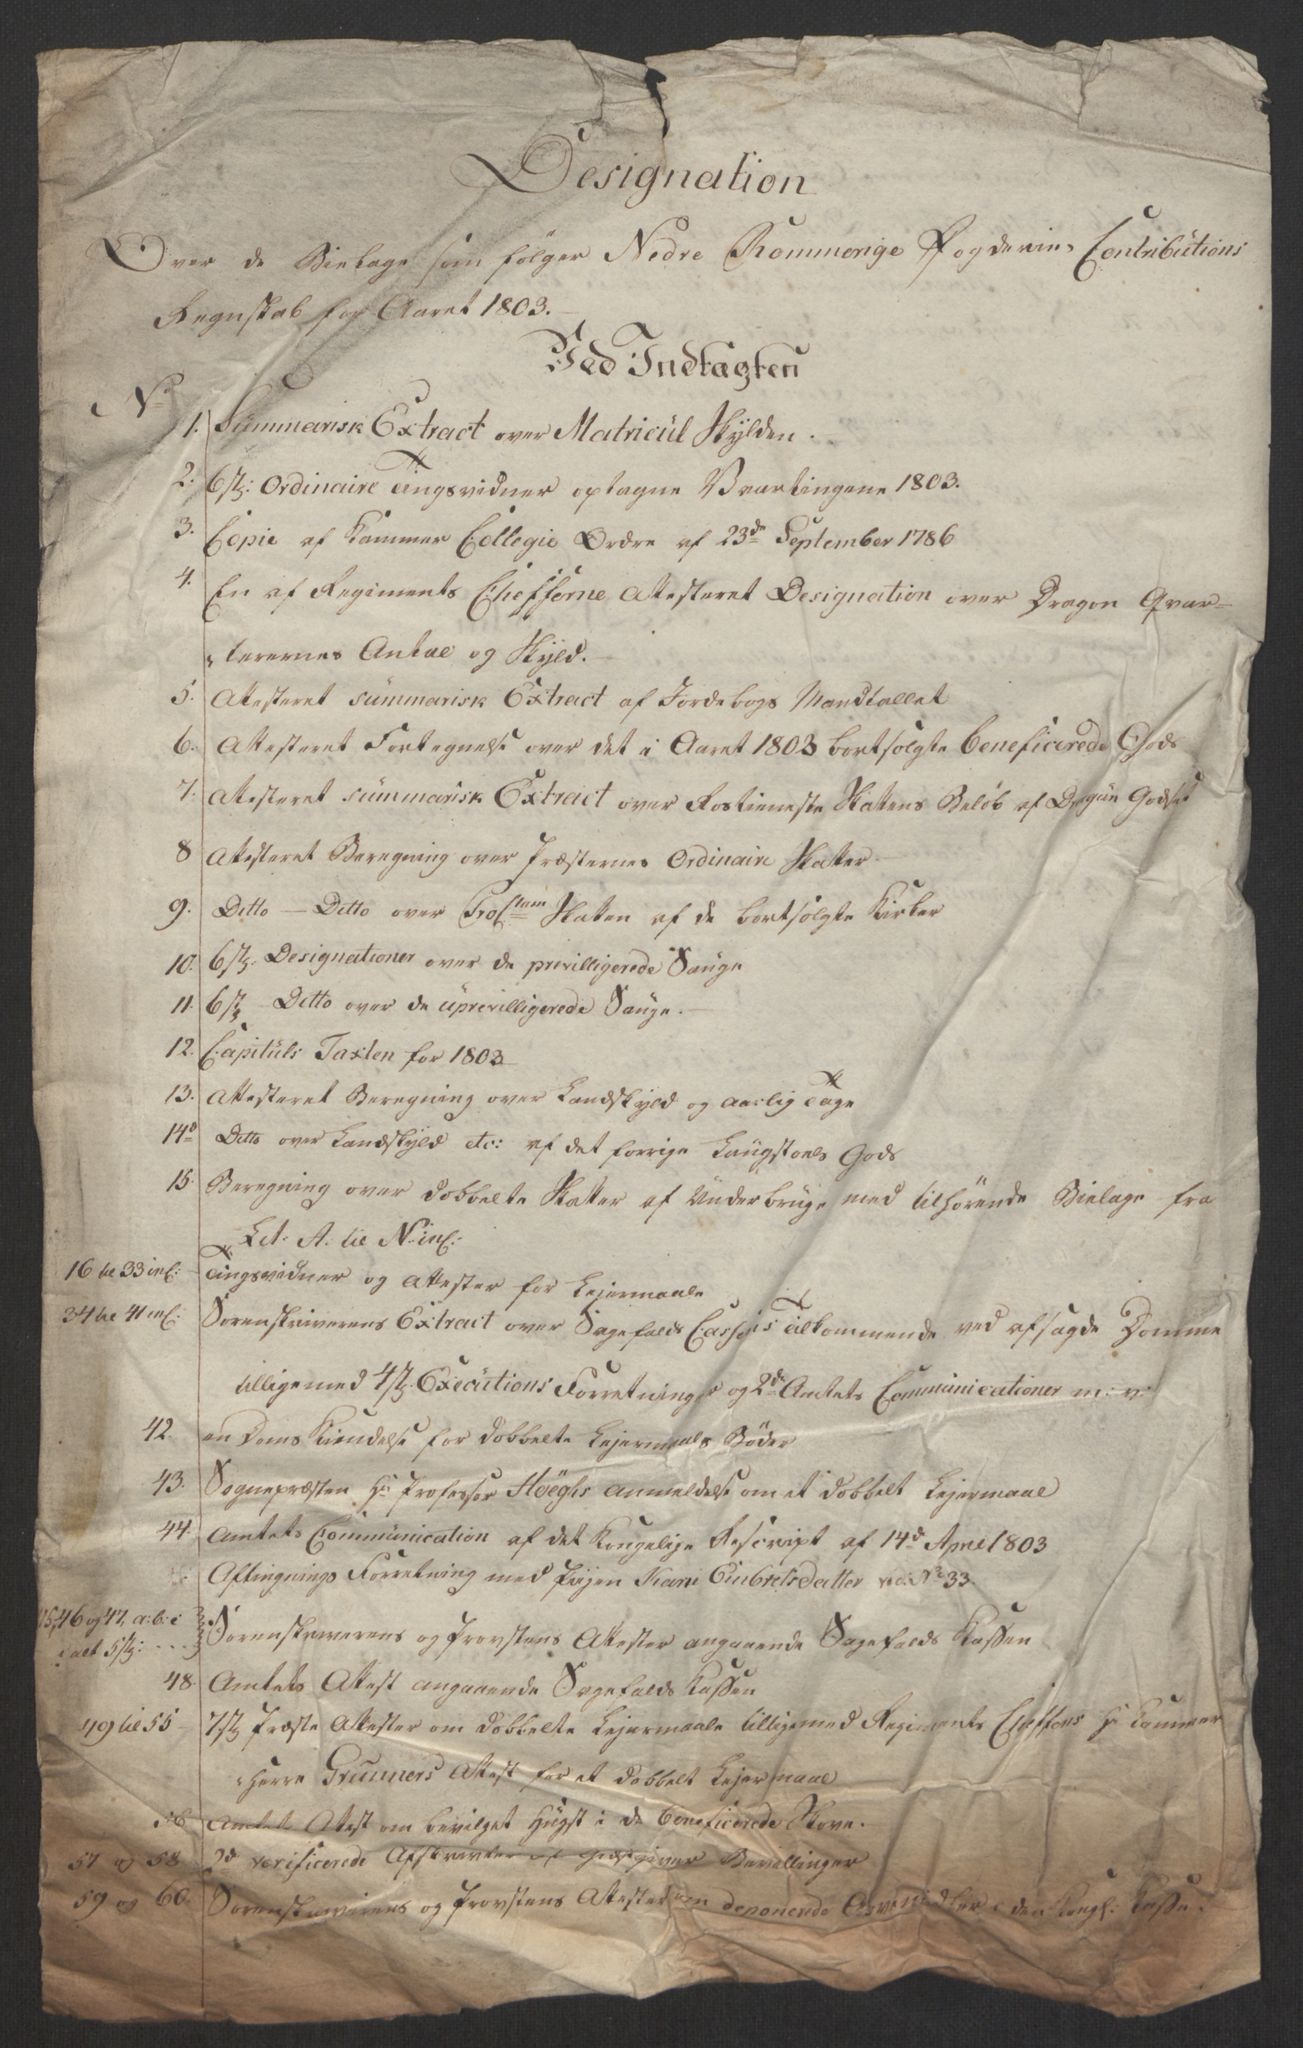 Designation
Over de Bielage som følger Nedre Rommerige Fogderies Contributions
Regnskab for Aaret 1803.
Ved Indtægten
No
1. Summarisk Extract over Matricul Skylden.
2. 6 st: Ordinaire Tingsvidner optagne Vaartingene 1803.
3. Copie af Kammer Collegie Ordre af 23de September 1786
4. En af Regiments Chefferne Attesteret Designation over Dragon Qvar-
terernes Antal og Skyld.
5. Attesteret summarisk Extract af Jordebogs Mandtallet
6. Attesteret Fortegnelse over det i Aaret 1803 bortsolgte beneficerede Gods
7. Attesteret summarisk Extract over Rostieneste Skattens Beløb af Dragun Godset
8 Attesteret Beregning over Præsternes Ordinaire Skatter
9. Ditto — Ditto over Skatten af de bortsolgte Kirker
10. 6 st. Designationer over de previlligerede Sauge
11. 6 st Ditto over de uprevilligerede Sauge.
12. Capituls Taxten for 1803
13. Attesteret Beregning over Landskyld og aarlig Tage
14d Ditto over Landskyld etc: af det forrige Laugstoels Gods
15. Beregning over dobbelte Skatter af Underbruge med tilhørende Bielage fra
Lit: A. til N. incl:
16 til 33 incl: Tingsvidner og Attester for Lejermaale
34 til 41 incl: Sorenskriverens Extract over Sagefalds Cassens Tilkommende ved afsagde Domme
tilligemed 4 st. Executions Forretninger og 2de Amtets Communicationer m: v:
42. en Doms Kiendelse for dobbelte Lejermaals Bøder
43. Sognepræsten Hr Professor Höeghs anmeldelse om et dobbelt Lejermaal
44. Amtets Communication af det Kongelige Rescript af 14d April 1803
Aftingnings Forretning med Pigen Kari Embretsdatter vid. No 33.
45, 46 og 47, a: b: c
i alt 5 st: Sorenskriverens og Provstens Attester angaaende Sagefalds Kassen
48 Amtets Attest angaaende Sagefalds Kassen
49 til 55 7 st Præste Attester om dobbelte Lejermaale tilligemed Regiments Cheffens Hr Kammer
Herre Gruners Attest for et dobbelt Lejermaal
56 Amtets Attest om bevilget Hugst i de beneficerede Skove.
57 og 58 2d verificerede Afskrivter af Giestgiver Bevillinger
59 og 60. Sorenskriverens og Provstens Attester om deponerede Arvemidler i den Kongl: Kasse.